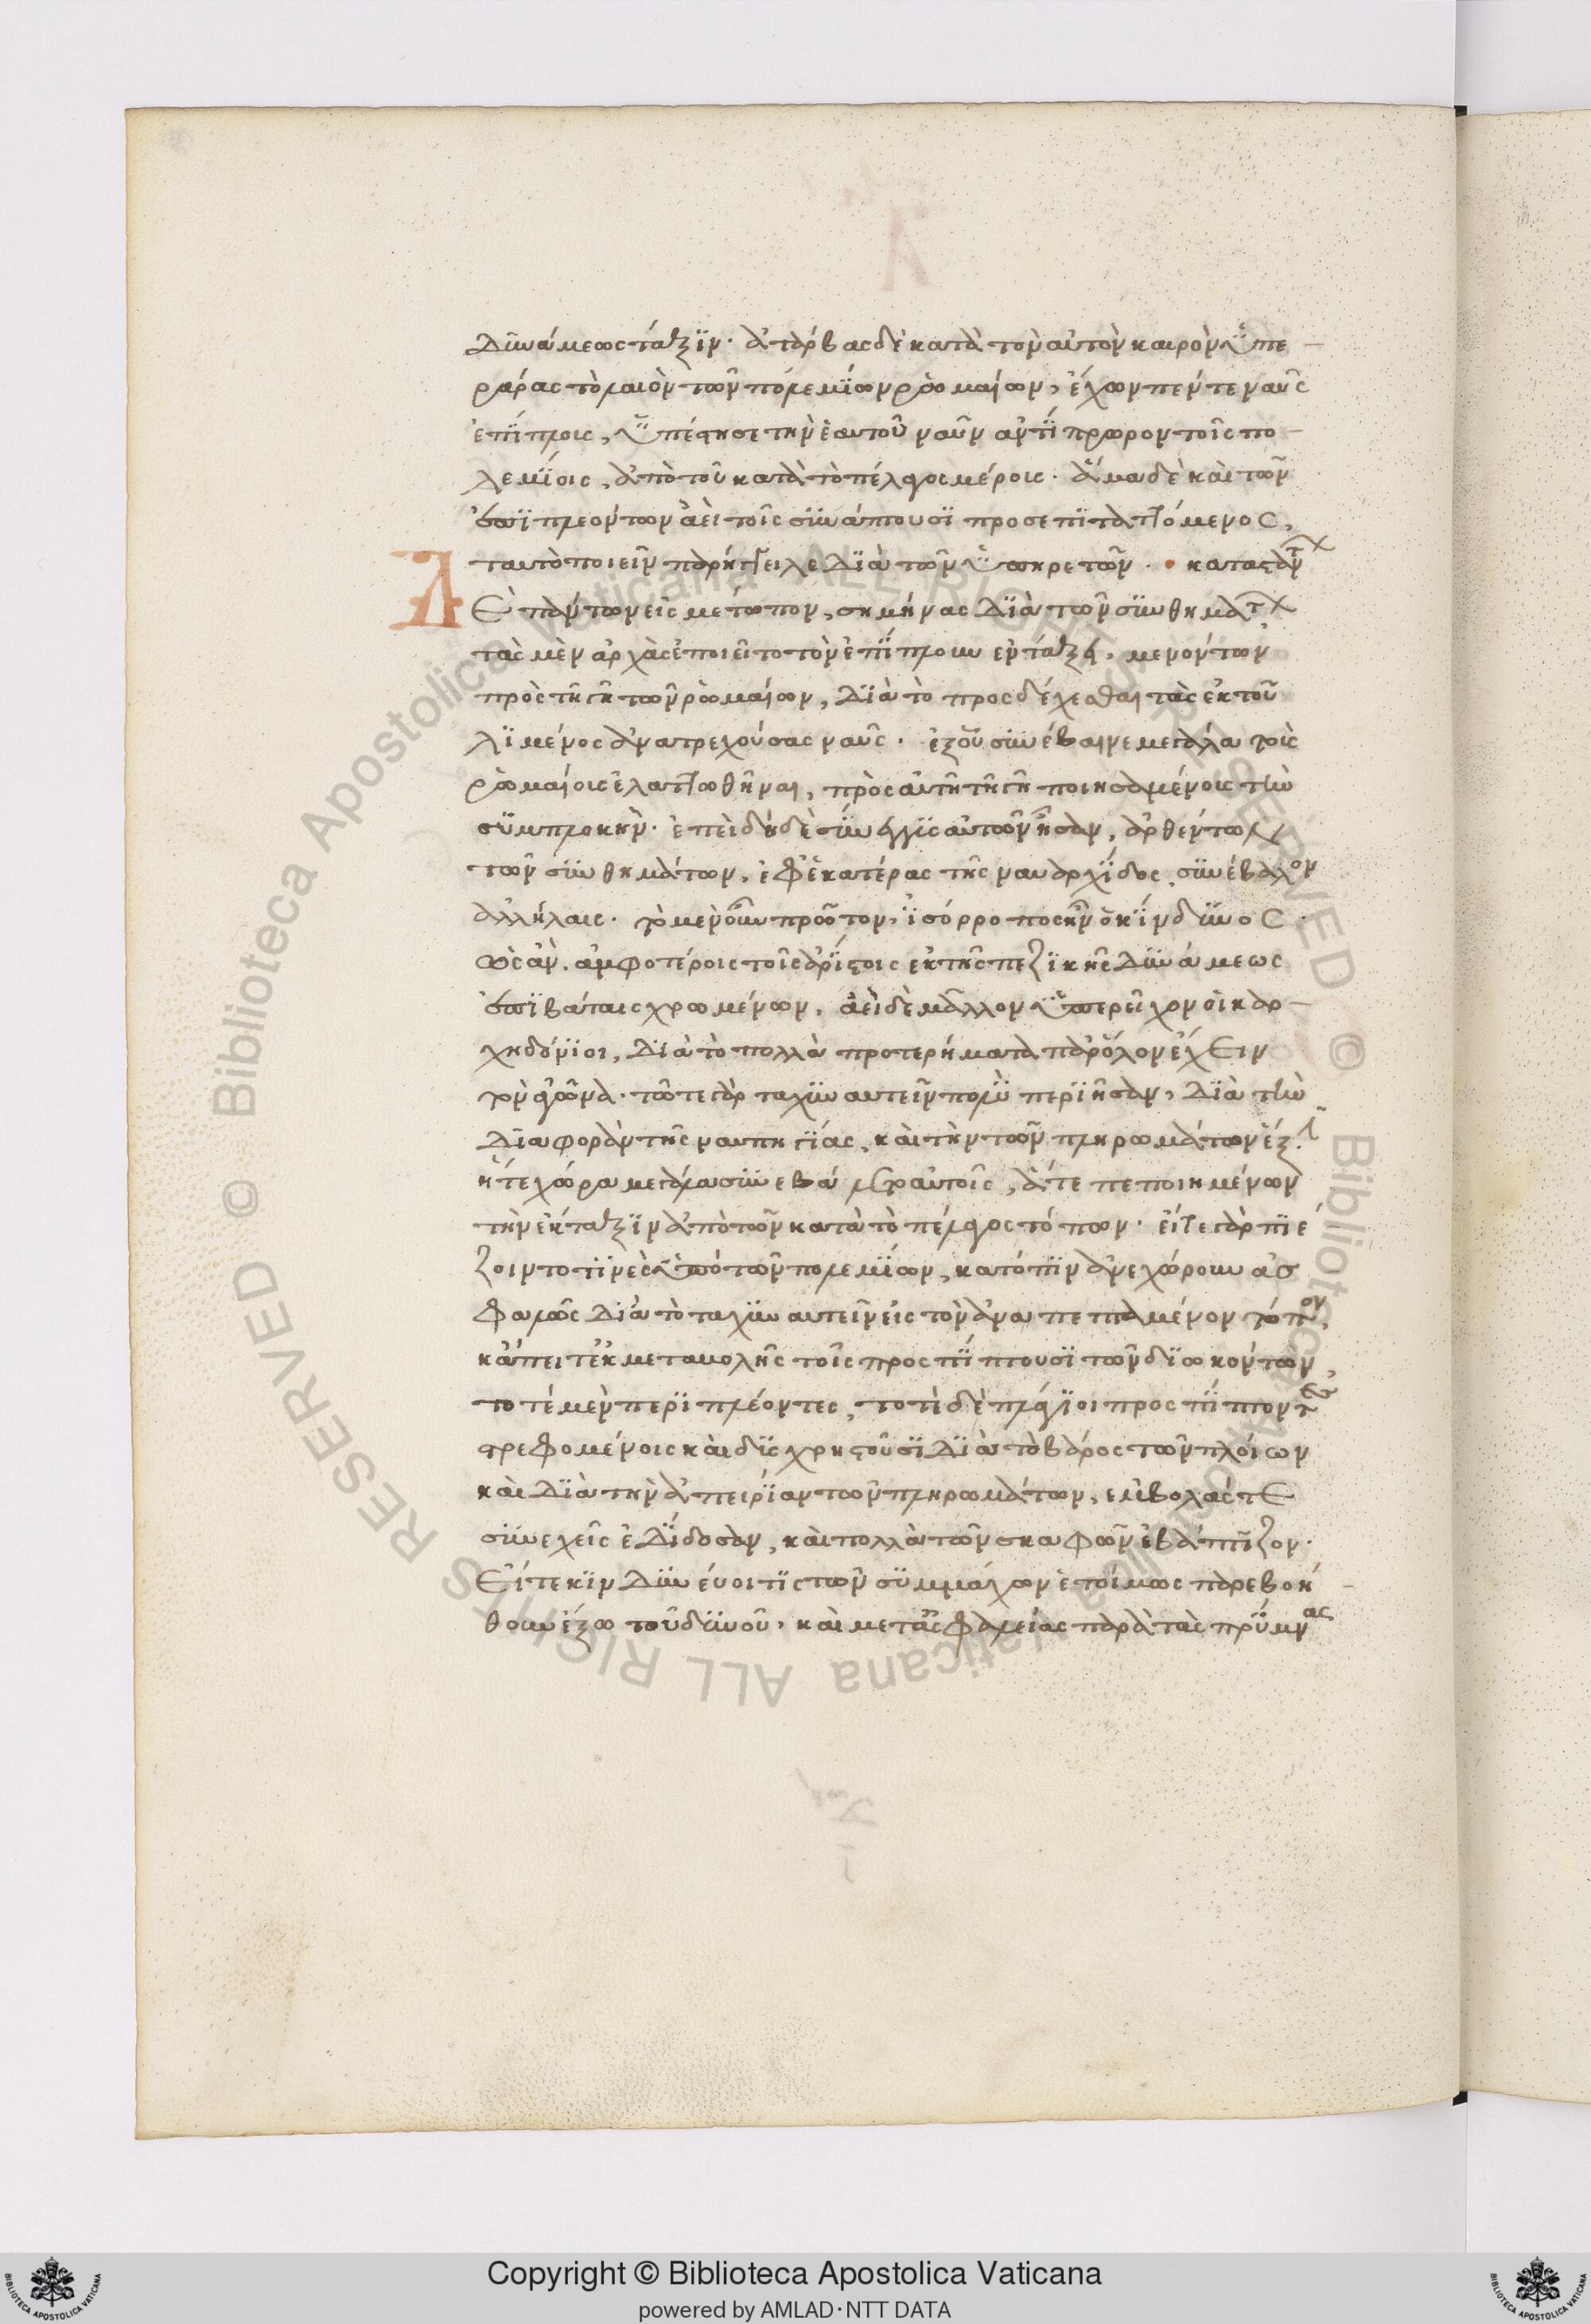 δυνάμεως τάξιν. ἀτάρβας δὲ κατὰ τὸν αὐτὸν καιρὸν ὑπε-
ράρας τὸ λαιὸν τῶν πολεμίων ῥωμαίων, ἔχων πέντε ναῦς
ἐπίπλοις, ὑπέστησε τὴν ἑαυτοῦ ναῦν ἀντίπρωρον τοῖς πο-
λεμίοις, ἀπὸ τοῦ κατὰ τὸ πέλαγος μέροις. ἅμα δὲ καὶ τῶν
ἐπιπλεόντων ἀεὶ τοῖς συνάπτουσι προσεπιταττόμενος,
ταυτὸ ποιεῖν παρήγγειλε διὰ τῶν ὑπηρετῶν. καταστάντ
Δὲ πάντων εἰς μέτωπον, σημήνας διὰ τῶν συνθημάτ
τὰς μὲν ἀρχὰς ἐποιεῖτο τὸν ἐπίπλουν ἐν τάξει, μενόντων
πρὸς τῇ γῇ τῶν ῥωμαίων, διὰ τὸ προσδέχεσθαι τὰς ἐκ τοῦ
λιμένος ἀνατρεχούσας ναῦς. ἐξ οὗ συνέβαινε μεγάλα τοῖς
ῥωμαίοις ἐλαττωθῆναι, πρὸς αὐτῇ τῇ γῇ ποιησαμένοις τὴν
συμπλοκήν. ἐπειδὴ δὲ σύνεγγις αὐτῶν ἦσαν, ἀρθέντων
τῶν συνθημάτων, ἐφ' ἑκατέρας τῆς ναυαρχίδος, συνέβαλλον
ἀλλήλαις. τὸ μὲν οὖν πρῶτον, ἰσόρροπος ἦν ὁ κίνδυνος.
ὡς ἂν ἀμφοτέροις τοῖς ἀρίστοις ἐκ τῆς πεζικῆς δυνάμεως
ἐπιβάταις χρωμένων. ἀεὶ δὲ μᾶλλον ὑπερεῖχον οἱ καρ-
χηδόνιοι, διὰ τὸ πολλὰ προτερήματα παρ' ὅλον ἔχειν
τὸν ἀγῶνα. τῷ τε γὰρ ταχυναυτεῖν πολὺ περιῆσαν, διὰ τὴν
διαφορὰν τῆς ναυπηγίας, καὶ τὴν τῶν πληρωμάτων ἕξιν
ἥ τε χώρα μεγάλα συνεβάλλετο αὐτοῖς, ἅτε πεποιημένων
τὴν ἔκταξιν ἀπὸ τῶν κατὰ τὸ πέλαγος τόπων. εἴτε γὰρ πιέ
ζοιντό τινες ὑπὸ τῶν πολεμίων, κατόπιν ἀνεχώρουν ἀσ
φαλῶς διὰ τὸ ταχυναυτεῖν εἰς τὸν ἀναπεπταμένον τόπον,
κἄπειτ' ἐκ μεταβολῆς τοῖς προσπίπτουσι τῶν διωκόντων,
τοτὲ μὲν περιπλέοντες, τοτὲ δὲ πλάγιοι προσπίπτοντες
στρεφομένοις καὶ δυσχρηστοῦσι διὰ τὸ βάρος τῶν πλοίων
καὶ διὰ τὴν ἀπειρίαν τῶν πληρωμάτων, ἐμβολάς τε
συνεχεῖς ἐδίδοσαν, καὶ πολλὰ τῶν σκαφῶν ἐβάπτιζον.
Εἴτε κινδυνεύοι τις τῶν συμμάχων ἑτοίμως παρεβοή-
θουν ἔξω τοῦ δεινοῦ, καὶ μετ' ἀσφαλείας παρὰ τὰς πρύμνας